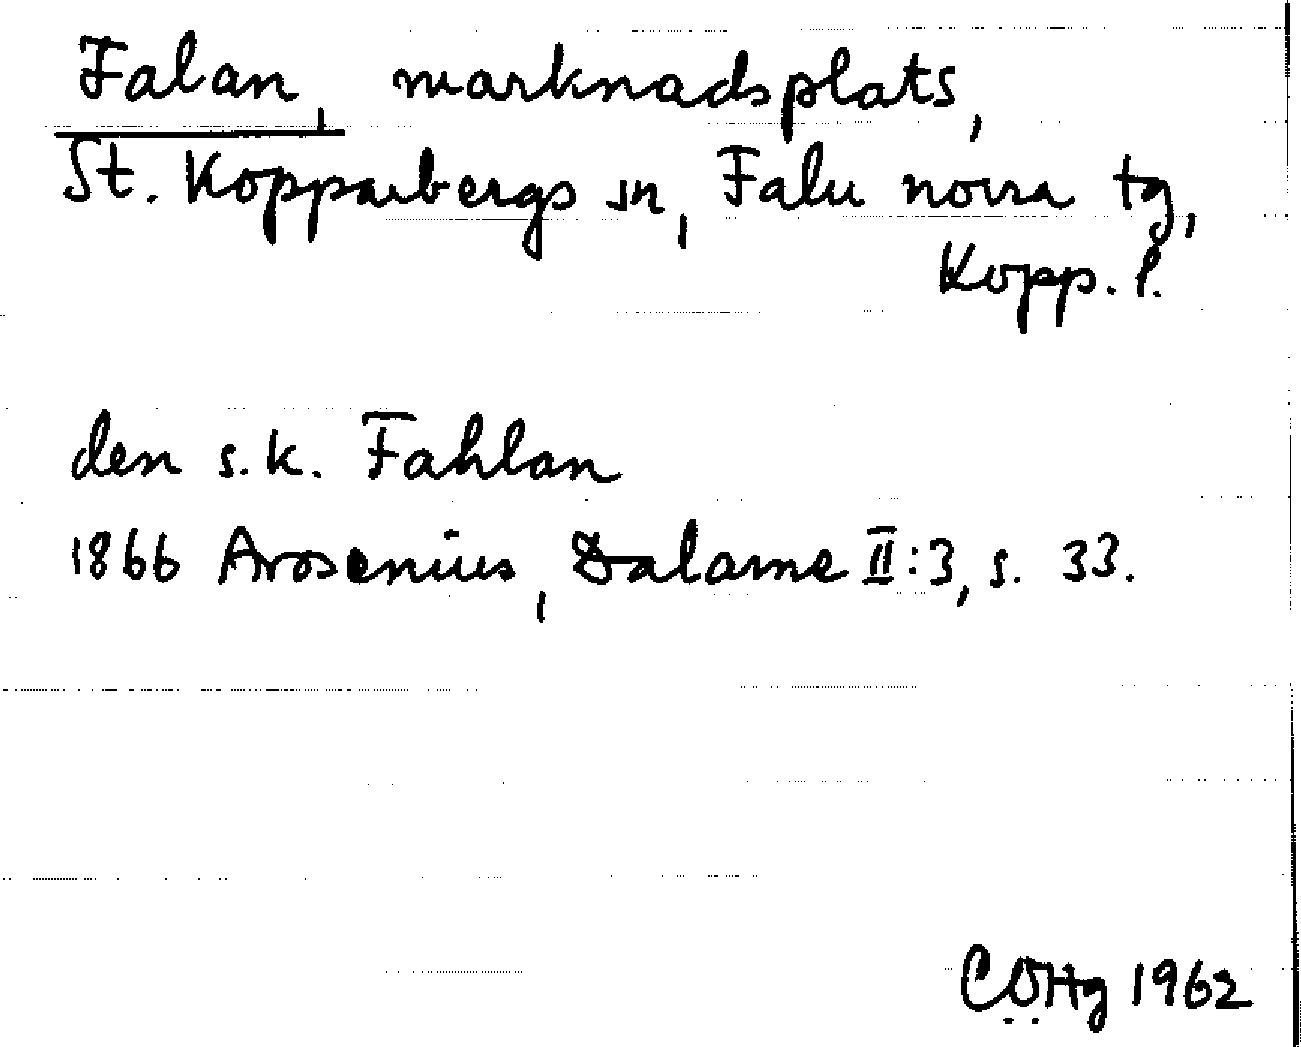 Falan, marknadsplats,
St. Kopparbergs sn, Falu norra tg,
Kopp. l.
den s.k. Fahlan
1866 Arosenius, Dalarne II:3, s. 33.
COHg 1962